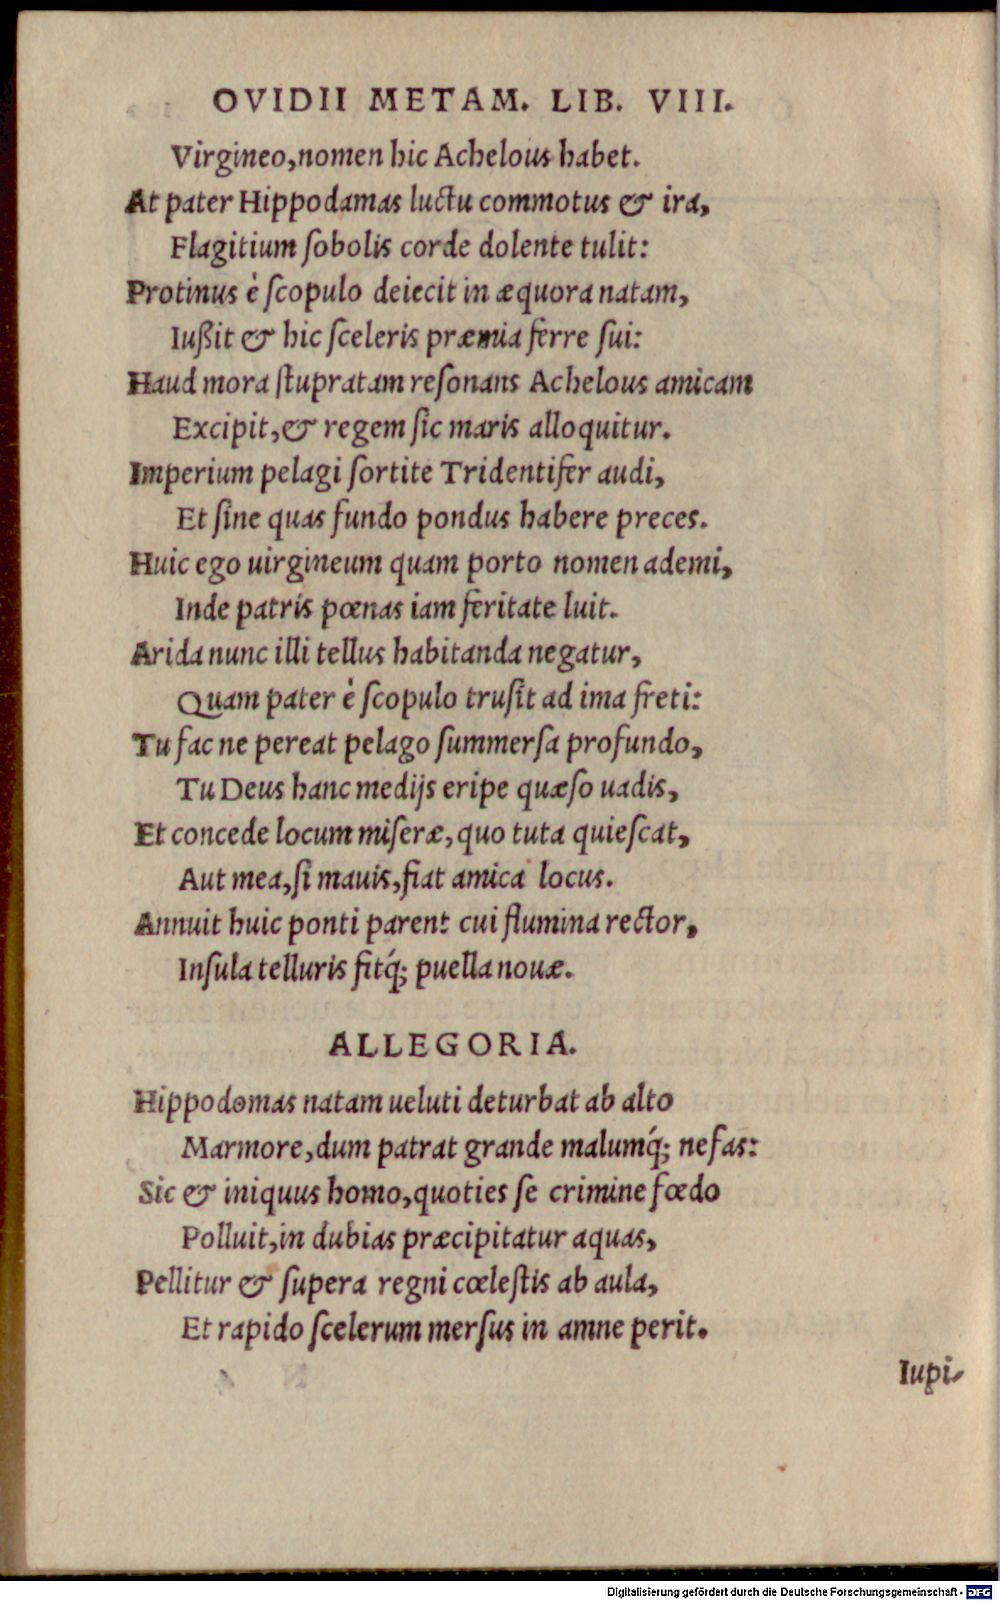 OVIDII METAM. LIB. VIII.
Virgineo, nomen hic Achelous habet.
At pater Hippodamas luctu commotus & ira,
Flagitium ſobolis corde dolente tulit:
Protinus è ſcopulo deiecit in æquora natam,
Iußit & hic ſceleris præmia ferre ſui:
Haud mora ſtupratam reſonans Achelous amicam
Excipit, & regem ſic maris alloquitur.
Imperium pelagi ſortite Tridentifer audi,
Et ſine quas fundo pondus habere preces.
Huic ego uirgineum quam porto nomen ademi,
Inde patris pœnas iam feritate luit.
Arida nunc illi tellus habitanda negatur,
Quam pater è ſcopulo truſit ad ima freti:
Tu fac ne pereat pelago ſummerſa profundo,
Tu Deus hanc medijs eripe quæſo uadis,
Et concede locum miſeræ, quo tuta quieſcat,
Aut mea, ſi mauis, fiat amica locus.
Annuit huic ponti parent cui flumina rector,
Inſula telluris fitq́; puella nouæ.
ALLEGORIA.
Hippodomas natam ueluti deturbat ab alto
Marmore, dum patrat grande malumq́; nefas:
Sic & iniquus homo, quoties ſe crimine fœdo
Polluit, in dubias præcipitatur aquas,
Pellitur & ſupera regni cœleſtis ab aula,
Et rapido ſcelerum merſus in amne perit.
Iupi-
Digitalisierung gefördert durch die Deutsche Forschungsgemeinschaft - DFG